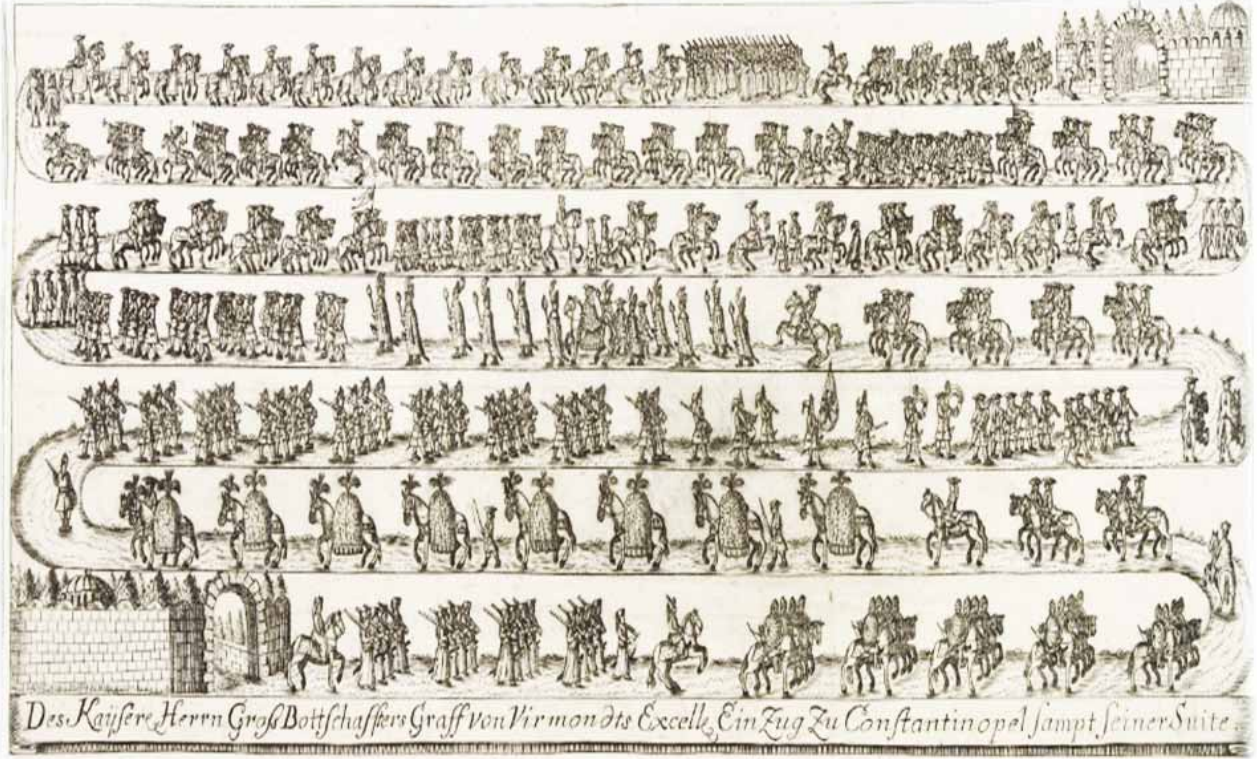 Des Kaÿsere, Herrn Groß Bottschaffters Graff von Virmondts Excelle, Ein Zug Zu Constantinopel sampt seiner Suite.